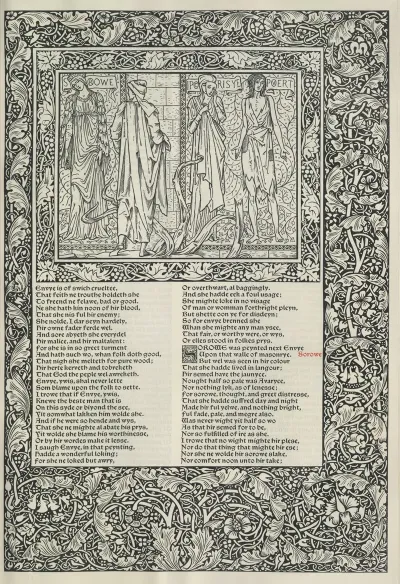 Envye is of swich crueltee,
That feith ne trouthe holdeth she
To freend ne felawe, bad or good.
Ne she hath kin noon of hir blood,
That she nis ful hir enemy;
She nolde, I dar seyn hardely,
Hir owne fader ferde wel.
And sore abyeth she everydel
Hir malice, and hir maltalent:
For she is in so greet turment
And hath such wo, whan folk doth good,
That nigh she melteth for pure wood;
Hir herte kerveth and tobreketh
That God the peple wel awreketh.
Envye, ywis, shal never lette
Som blame upon the folk to sette.
I trowe that if Envye, ywis,
Knewe the beste man that is
On this syde or biyond the see,
Yit somwhat lakken him wolde she.
And if he were so hende and wys,
That she ne mighte al abate his prys,
Yit wolde she blame his worthinesse,
Or by hir wordes make it lesse.
I saugh Envye, in that peynting,
Hadde a wonderful loking;
For she ne loked but awry,
Or overthwart, al baggingly.
And she hadde eek a foul usage;
She mighte loke in no visage
Of man or womman forthright pleyn,
But shette oon ye for disdeyn;
So for envye brenned she
Whan she mighte any man ysee,
That fair, or worthy were, or wys,
Or elles stood in folkes prys.
SOROWE was peynted next Envye
Sorowe
Upon that walle of masonrye.
But wel was seen in hir colour
That she hadde lived in langour;
Hir semed have the jaunyce.
Nought half so pale was Avaryce,
Nor nothing lyk, as of lenesse;
For sorowe, thought, and greet distresse,
That she hadde suffred day and night
Made hir ful yelwe, and nothing bright,
Ful fade, pale, and megre also.
Was never wight yit half so wo
As that hir semed for to be,
Nor so fulfilled of ire as she.
I trowe that no wight mighte hir plese,
Nor do that thing that mighte hir ese;
Nor she ne wolde hir sorowe slake,
Nor comfort noon unto hir take;